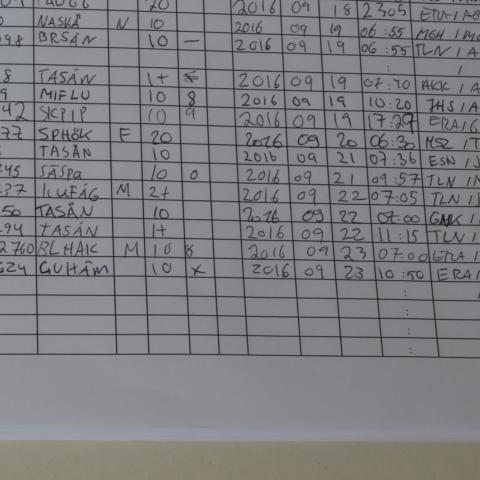 20 2016 09 18 2305 ERA/AG
0 NASKÅ N 10 2016 09 19 06:55 MGH/MG
98 BRSÅN 10 — 2016 09 19 06:55 TLN/A
:
8 TASÅN 1+ 2016 09 19 07:20 AKK/A
9 MIFLU 10 8 2016 09 19 10:20 JHS/A
42 SKPIP 10 9 2016 09 19 17:27 ERA/G
77 SPHÖK F 20 2016 09 20 06:30 /T
TASÅN 10 2016 09 21 07:36 ESN/J
245 SÄSPA 10 0 2016 09 21 09:57 TLN/M
237 ILUFÅG M 2+ 2016 09 22 07:05 TLN/J
50 TASÅN 10 2016 09 22 07:00 /L
94 TASÅN 1+ 2016 09 22 11:15 TLN/
2760 BLHAK M 10 8 2016 09 23 07:00 ERA/
624 GUHÄM 10 x 2016 09 23 10:50 ERA/
:
:
:
: